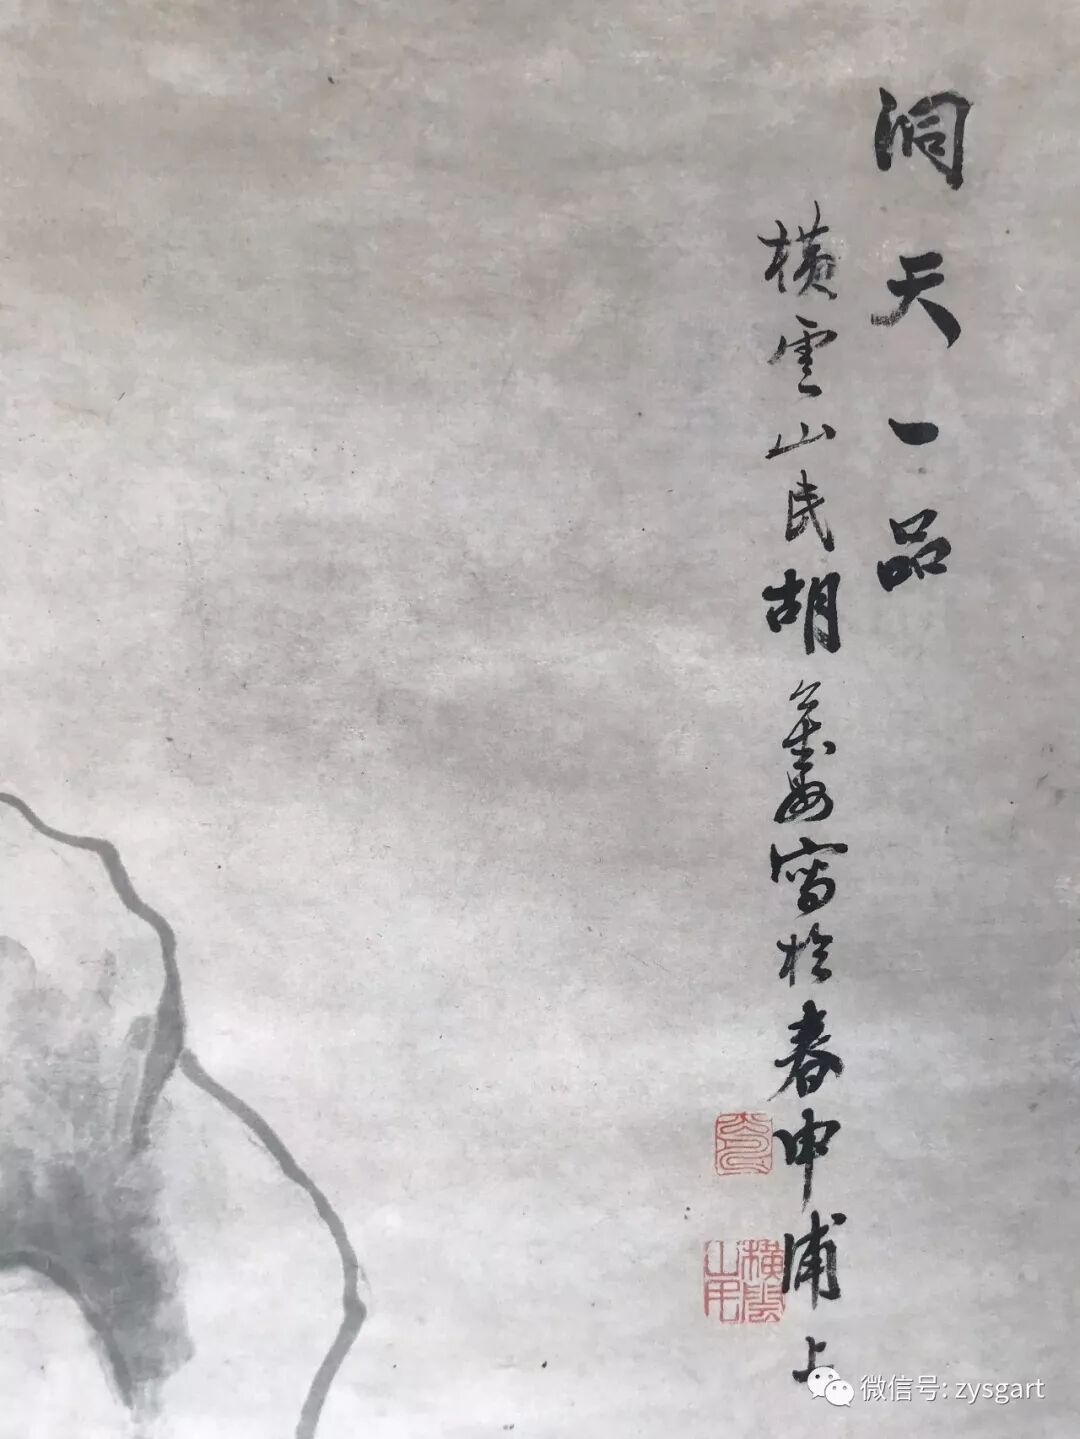 洞天一品
横雲山民胡公壽寫於春申浦上
横雲山民
微信号: zysgart